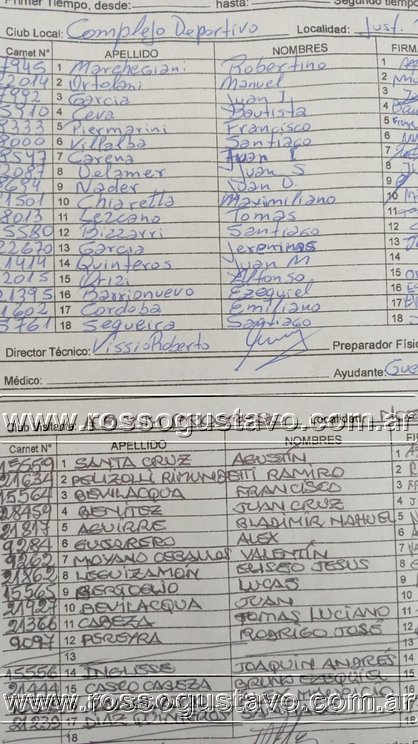 Primer Tiempo, desde: hasta: Segundo tiempo
Club Local: Complejo Deportivo Localidad: Just.
Carnet N° APELLIDO NOMBRES FIR
7945 1 Marchegiani Robertino
22014 2 Ortolani Manuel
7892 3 Garcia Juan I
5910 4 Ceva Bautista
8333 5 Piermarini Francisco
8000 6 Villalba Santiago
8547 7 Carena Juan I
22087 8 Delamer Juan S
8694 9 Nader Juan D.
21501 10 Chiaretta Maximiliano
8013 11 Lezcano Tomas
15580 12 Bizzarri Santiago
22670 13 Garcia Jeremias
21414 14 Quinteros Juan M
22015 15 Alfonso
21395 16 Barrionuevo Ezequiel
21602 17 Cordoba Emiliano
15761 18 Segueira Santiago
Director Técnico: Vissio Roberto Preparador Físic
Médico: Ayudante: Gue
www.rossogustavo.com.ar
Club Visitante: Localidad:
Carnet N° APELLIDO NOMBRES FI
15559 1 SANTA CRUZ AGUSTÍN
21634 2 PELIZOLLI RIMUNDETTI RAMIRO
15564 3 BEVILACQUA FRANCISCO
28459 4 BENITEZ JUAN CRUZ
21817 5 AGUIRRE BLADIMIR NAHUEL
9284 6 GUERRERO ALEX
9262 7 MOYANO CEBALLOS VALENTÍN
21863 8 LEGUIZAMÓN ELISEO JESUS
15565 9 BERTOGLIO LUCAS
21927 10 BEVILACQUA JUAN
21366 11 CABEZA TOMAS LUCIANO
9097 12 PEREYRA RODRIGO JOSÉ
13
15556 14 INGLESE JOAQUIN ANDRÉS
21444 15 CASCO CABEZA BRUNO EZEQUIEL
www.rossogustavo.com.ar
21239 17 DIAZ QUINTEROS
18